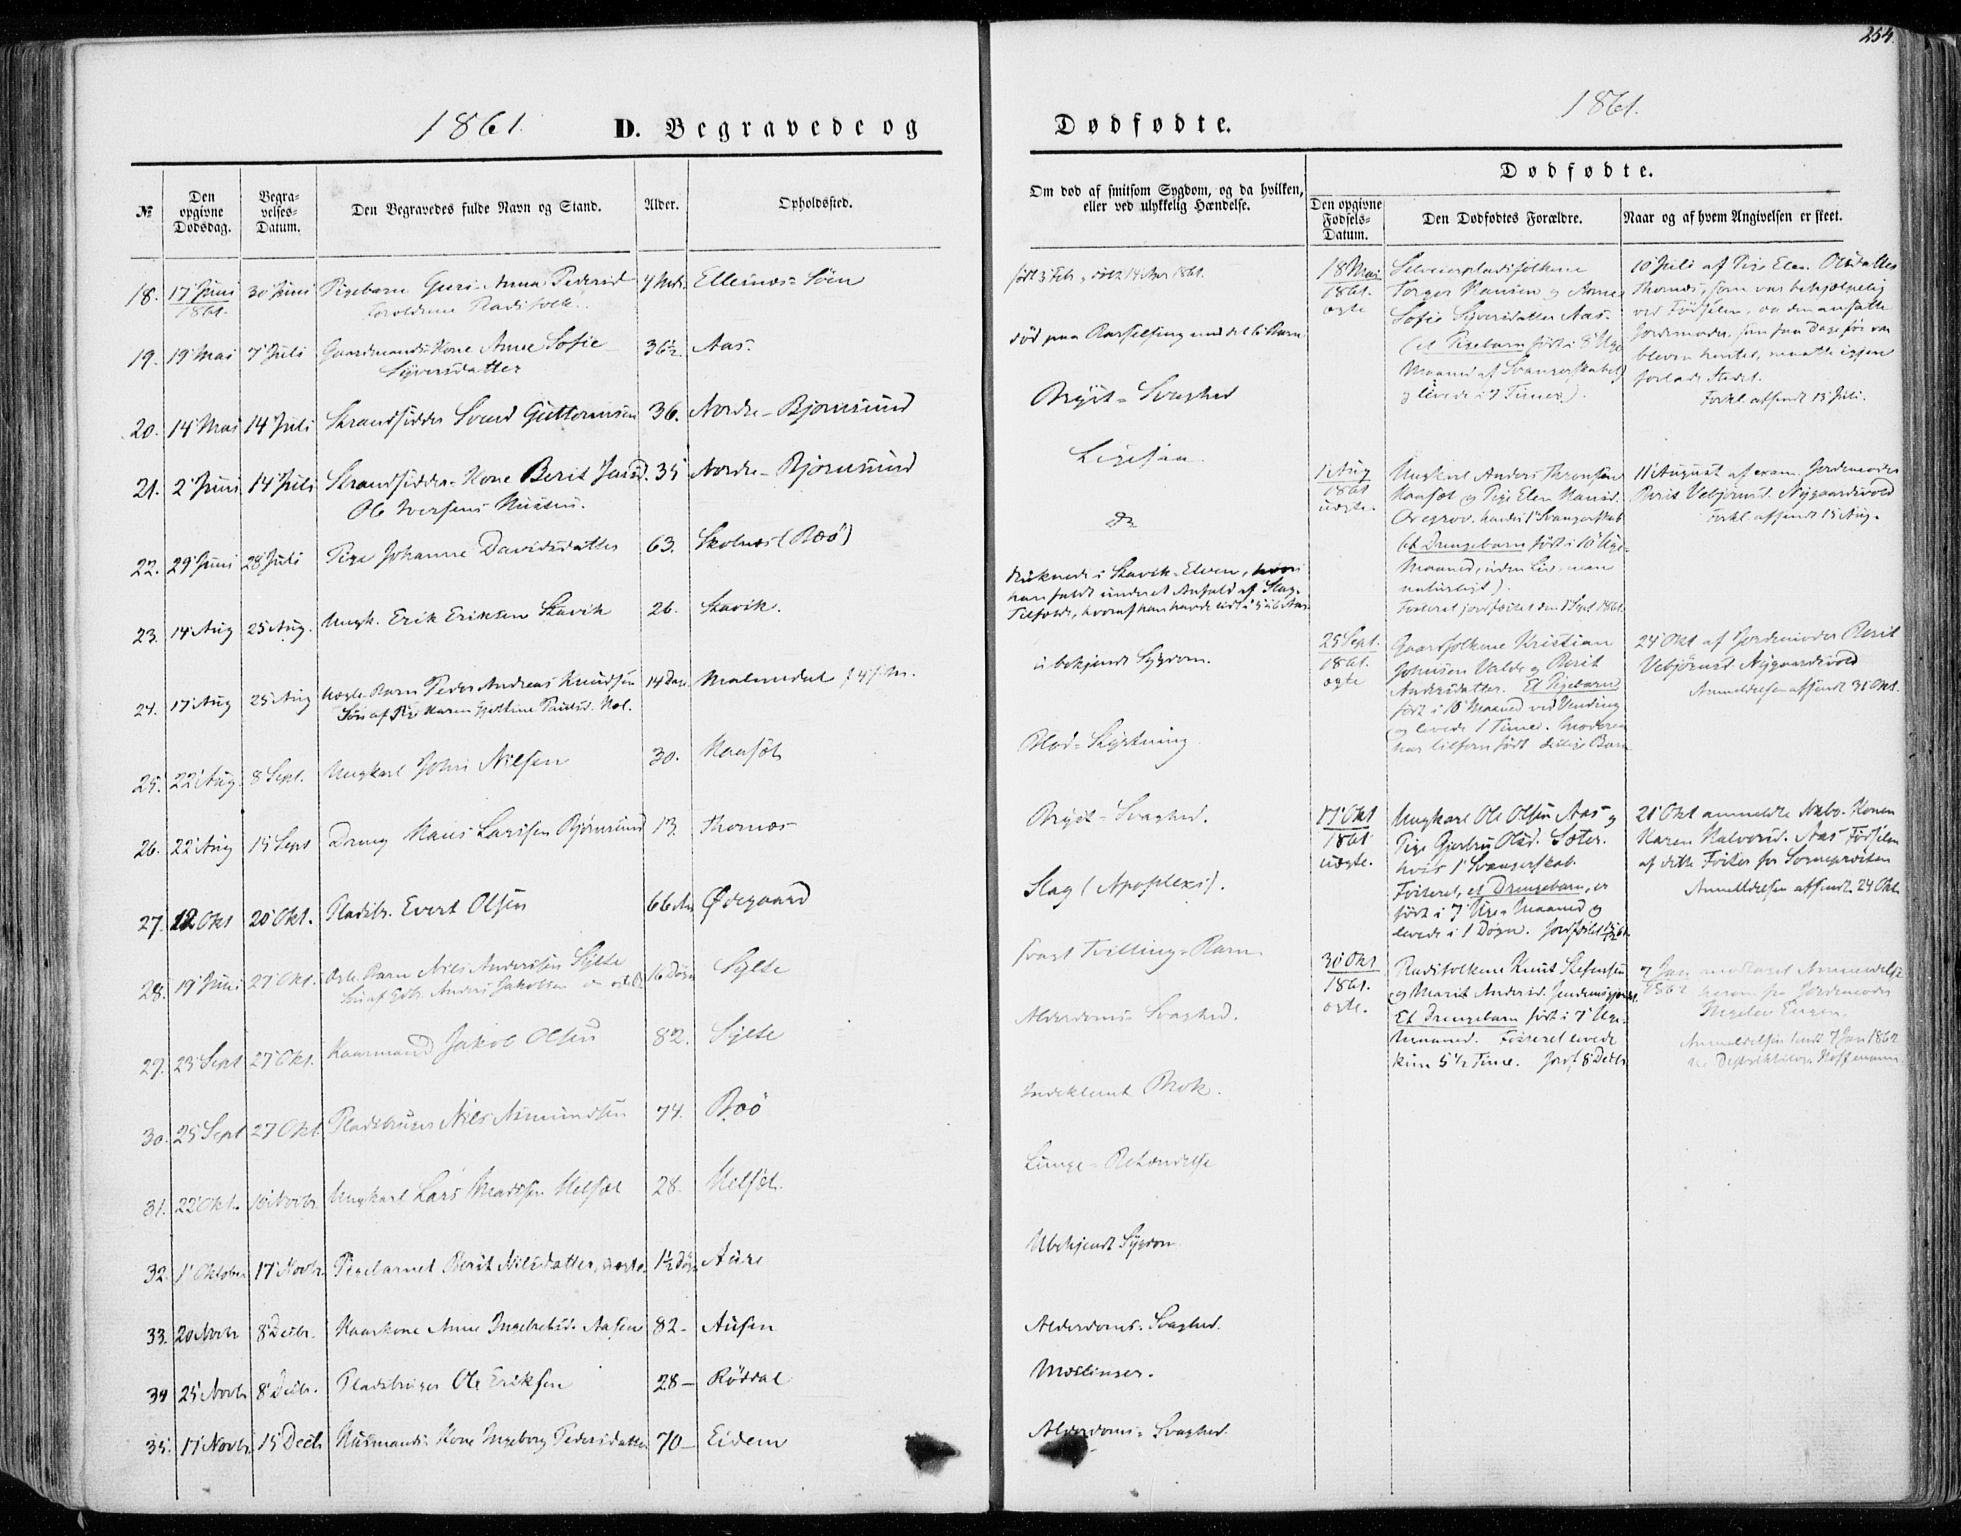 254.
1861.
D. Begravede og
Dødfødte.
1861.
№
Den opgivne Dødsdag.
Begravelses-Datum.
Den Begravedes fulde Navn og Stand.
Alder.
Opholdssted.
18. 17 Juni 1861. 30 Juni Pigebarn Guri Anna Pedersd 4 Mdr. Ellesnæs-Søen
Forældrene Pladsfolk.
19. 19 Mai 7 Juli Gaardmands Kone Anne Sofie 36½ Aas.
Syversdatter
20. 14 Mai 14 Juli Strandsidder Svend Guttormsen 36. Nordre-Bjørnsund
21. 2 Juni 14 Juli Strandsidder-Kone Berit Jansd. 35 Nordre-Bjørnsund
Ole Iversens Hustru.
22. 29 Juni 28 Juli Pige Johanne Davidsdatter 63. Skolnæs (Boø)
23. 14 Aug 25 Aug. Ungk. Erik Eriksen Stavik 26. Stavik.
24. 17 Aug 25 Aug Uægte Barn Peder Andreas Knudsen 14 Dage Malmedal
Søn af Pige Karen
25. 22 Aug 8 Sept. Ungkarl John Nilsen 30.
26. 22 Aug 15 Sept Dreng Hans Larssen Bjørnsund 13. Thornæs
27. 12 Okt 20 Okt. Pladsbr. Evert Olsen 66 Aar Ødegaard
28. 19 Juni 27 Okt. Ægte Barn Nils Andersen Sylte 16 Døgn Sylte
29. 23 Sept 27 Okt. Kaarmand Jakob Olsen 82. Sylte
30. 25 Sept 27 Okt. Pladsbruger Nils Asmundsen 74. Boø
31. 22 Okt. 10 Novbr. Ungkarl Lars Madssen Helsæt 28. Helsæt.
32. 1 Oktober 17 Novbr. Pigebarnet Berit Nilsdatter, uægte 1½ Døgn Aure
33. 20 Novbr 8 Decbr. Kaarkone Anne Ingebrigtsd. Aasen 82 - Ausen
34 25 Novbr 8 Decbr. Pladsbruger Ole Eriksen 28 - Røddal
35. 17 Novbr 15 Decbr Husmands-Kone Ingeborg Pedersdatter 70 - Eidem
Om død af smitsom Sygdom, og da hvilken,
eller ved ulykkelig Hændelse.
født 3 Febr., døbt 14 Mar 1861.
død paa Barselseng med
Bryst-Svaghed
Ligesaa
Do
druknede i Stavik-Elven, hvori
han faldt under et Anfald af Slag-
Tilfælde, hvoraf han havde
ubekjendt Sygdom.
Blod-Styrtning
Bryst-Svaghed.
Slag (Apoplexi).
svagt Tvilling-Barn
Alderdoms-Svaghed.
Indeklemt Brok.
Lunge-Betændelse
Ubekjendt Sygdom
Alderdoms-Svaghed.
Mæslinger.
Alderdoms-Svaghed.
Dødfødte.
Den opgivne Fødsels-Datum.
Den Dødfødtes Forældre.
Naar og af hvem Angivelsen er skeet.
18 Mai 1861. ægte
Selveierpladsfolkene
Torger Hansen og Anne
Sofie Syversdatter Aas.
(et Pigebarn født i 8 Uge-
Maaned af Svangerskabet
og levede i 7 Timer).
10 Juli af Pige Elen Olsdatter
Thornæs, som var behjælpelig
ved Fødselen, da den ansatte
Jordemoder, som faa Dage før var
bleven hentet, maatte igjen
forlade Stedet.
Forkl. afsendt 13 Juli.
1 Aug 1861 uægte.
Ungkarl Anders
og Pige Elen Hansd.
hendes 1 Svangerskab
(et Drengebarn født i 10 Uge-
Maaned, uden Liv, men
naturligt).
Fosteret jordfæstet den 8 Sept 1861.
11 August af exam. Jordemoder
Berit Vebjørnsd. Nygaardsvold
Forkl. afsendt 15 Aug.
25 Sept. 1861. ægte
Gaardfolkene Kristian
Johnsen Valde og Berit
Andersdatter. Et Pigebarn
født i 10 Maaned ved Vending
og levede 1 Time. Moderen
har tilforn født
24 Okt af Jordemoder Berit
Vebjørnsd. Nygaardsvold
Anmeldelsen afsendt 31 Okt.
17 Okt 1861 uægte.
Ungkarl Ole Olsen Aas og
Pige Gjertru Olsd. Sæter.
hvis 1 Svangerskab.
Fosteret, et Drengebarn, er
født i 7 Uge-Maaned og
levede i 1 Døgn.
21 Okt anmeldte Nabo-Konen
Karen Halvorsd. Aas Fødselen
af dette Foster for Sognepræsten
Anmeldelsen afsendt 24 Okt
30 Okt 1861. ægte.
Pladsfolkene Knut
og Marit Andersd.
Et Drengebarn født i 7 Uge-
Maaned. Fosteret levede
kun 5½ Time. Jordf. 8 Decbr
7 Jan 1862 modtaget Anmeldelse
herom fra Jordemoder
Anmeldelsen sendt 7 Jan 1862
Hoffmann.